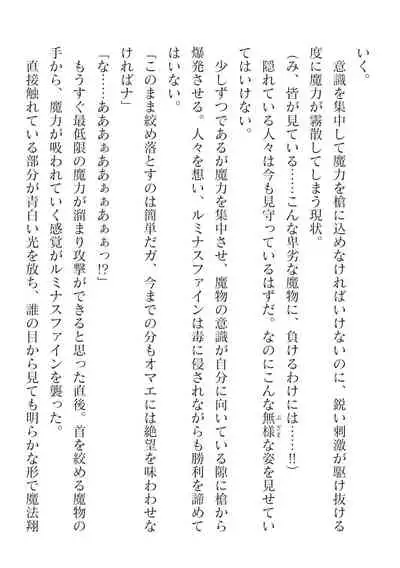 いく。
　意識を集中して魔力を槍に込めなければいけないのに、鋭い刺激が駆け抜ける
度に魔力が霧散してしまう現状。
（み、皆が見ている……こんな卑劣な魔物に、負けるわけには……!!）
　隠れている人々は今も見守っているはずだ。なのにこんな無様な姿を見せてい
てはいけない。
　少しずつであるが魔力を集中させ、魔物の意識が自分に向いている隙に槍から
爆発させる。人々を想い、ルミナスファインは毒に侵されながらも勝利を諦めて
はいない。
「このまま絞め落とすのは簡単だガ、今までの分もオマエには絶望を味わわせな
ければナ」
「な……あああぁああぁあぁぁっ!?」
　もうすぐ最低限の魔力が溜まり攻撃ができると思った直後。首を絞める魔物の
手から、魔力が吸われていく感覚がルミナスファインを襲った。
　直接触れている部分が青白い光を放ち、誰の目から見ても明らかな形で魔法翔